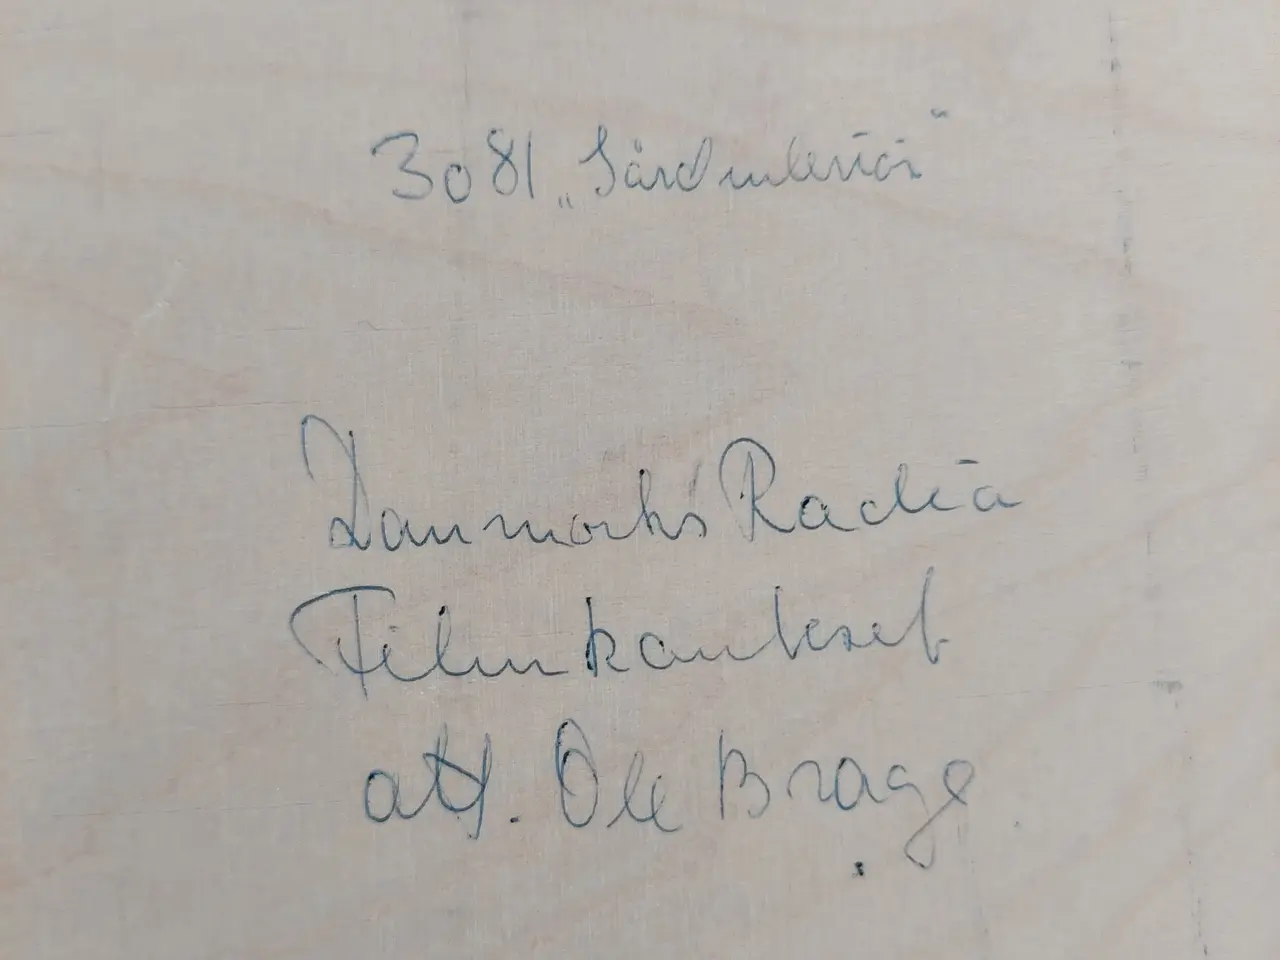 3081 „Gårdinteriör"
Danmarks Radio
Filmkontoret
att. Ole Brage